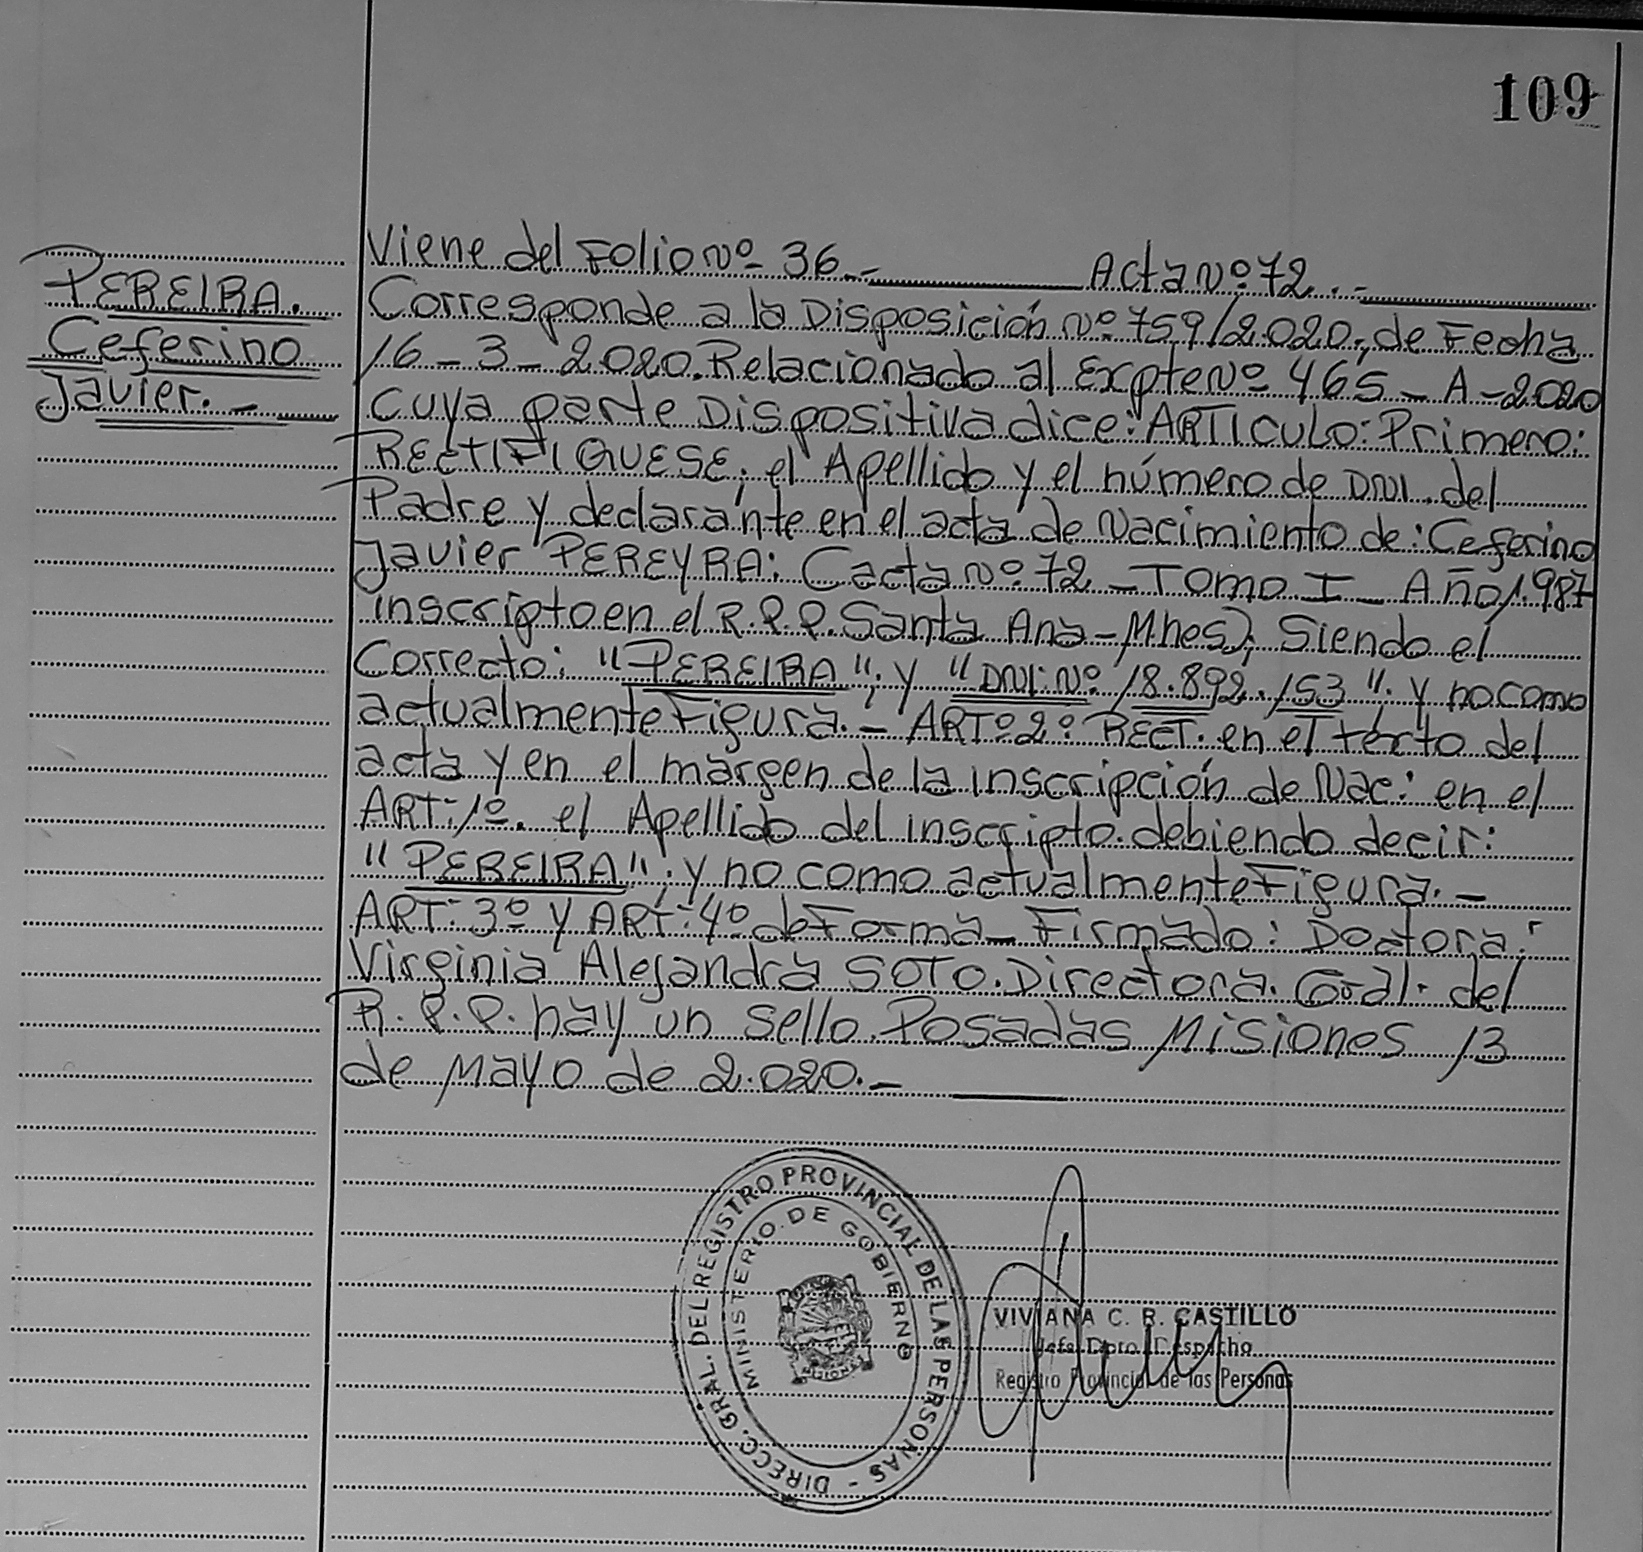 109
PEREIRA.
Ceferino
Javier.-
Viene del Folio Nº 36.- Acta Nº 72.-
Corresponde a la Disposición Nº 759/2.020, de Fecha
16-3-2020. Relacionado al Expte Nº 465-A-2020
cuya parte Dispositiva dice: ARTICULO: Primero:
RECTIFIQUESE, el Apellido y el número de DNI. del
Padre y declarante en el acta de Nacimiento de: Ceferino
Javier PEREYRA: (acta Nº 72 - Tomo I - Año 1.987
inscripto en el R.P.P. Santa Ana - Mnes), Siendo el
Correcto: "PEREIRA"; y "DNI: Nº 18.892.153". y no como
actualmente Figura.- ARTº 2º RECT. en el texto del
acta y en el margen de la inscripción de Nac: en el
ART: 1º. el Apellido del inscripto. debiendo decir:
"PEREIRA"; y no como actualmente Figura.-
ART: 3º y ART: 4º de Forma - Firmado: Doctora:
Virginia Alejandra SOTO. Directora. Gral. del
R.P.P. hay un sello. Posadas Misiones 13
de Mayo de 2.020.-
DIRECC. GRAL. DEL REGISTRO PROVINCIAL DE LAS PERSONAS -
MINISTERIO DE GOBIERNO
MISIONES
VIVIANA C. R. CASTILLO
Jefa Dpto. Despacho
Registro Provincial de las Personas